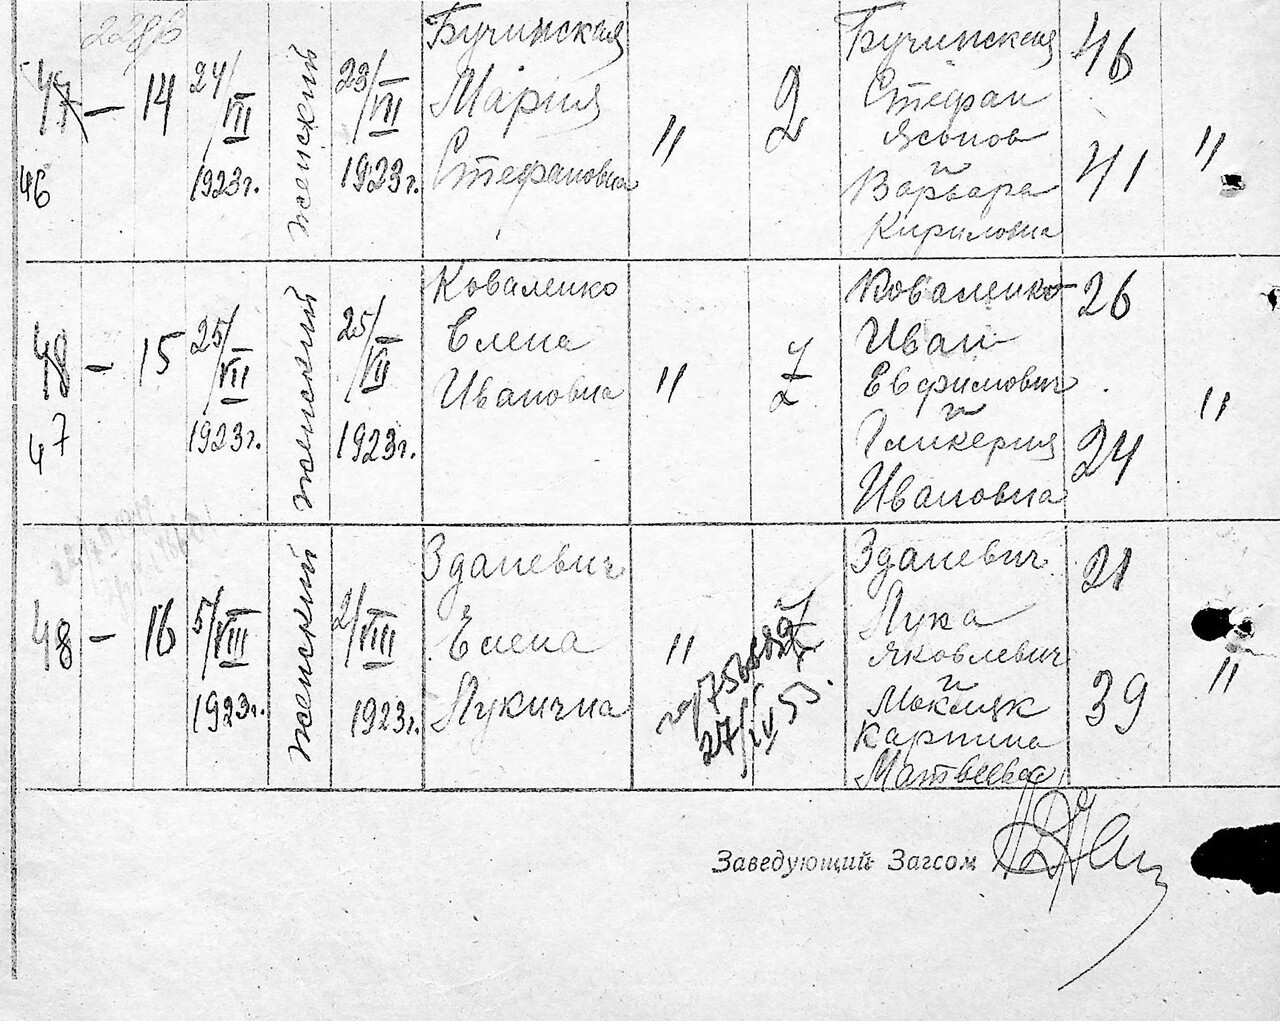 2286
47 — 14 24/VII 1923г. женский 23/VII 1923г.
46
Бучинская
Мария
Стефановна
" 2
Бучинская
Стефан
и
Варвара
Кириловна
46
41
"
48 — 15 25/VII 1923г. женский 25/VII 1923г.
47
Коваленко
Елена
Ивановна
"
Коваленко
Иван
Евфимович
и
Гликерия
Ивановна
26
24
"
48 — 16 5/VIII 1923г. женский 2/VIII 1923г.
Зданевич
Елена
Лукична
"
27/IV 53.
Зданевич
Лука
Яковлевич
и
Матвеевна
21
39
"
Заведующий Загсом